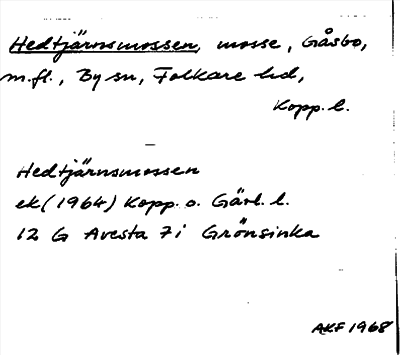 Hedtjärnsmossen, mosse, Gåsbo,
m.fl., By sn, Folkare hd,
Kopp. l.
Hedtjärnsmossen
ek (1964) Kopp. o. Gävl. l.
12 G Avesta 7i Grönsinka
AKF 1968